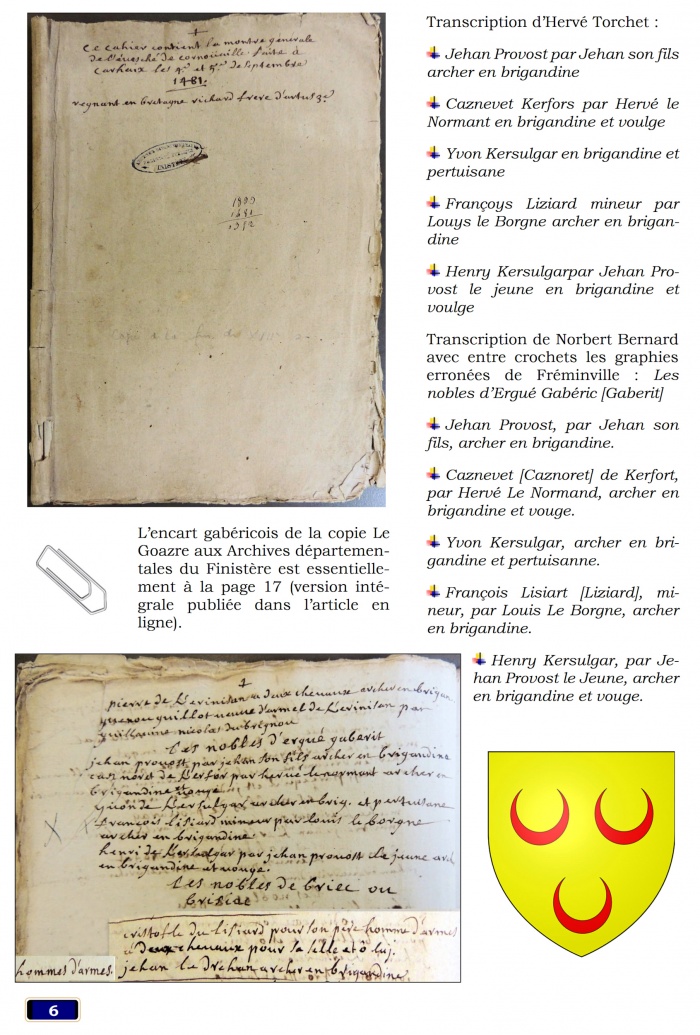 +
Ce cahier contient la montre generale
de l'evesché de cornouaille faite à
Carhaix les 4e et 5e de septembre
1481.
regnant en bretagne richard frere d'artus 3e
FINISTÈRE
1899
1481
Transcription d'Hervé Torchet :
Jehan Provost par Jehan son fils
archer en brigandine
Caznevet Kerfors par Hervé le
Normant en brigandine et voulge
Yvon Kersulgar en brigandine et
pertuisane
Françoys Liziard mineur par
Louys le Borgne archer en brigan-
dine
Henry Kersulgarpar Jehan Pro-
vost le jeune en brigandine et
voulge
Transcription de Norbert Bernard
avec entre crochets les graphies
erronées de Fréminville : Les
nobles d'Ergué Gabéric [Gaberit]
Jehan Provost, par Jehan son
fils, archer en brigandine.
Caznevet [Caznoret] de Kerfort,
par Hervé Le Normand, archer en
brigandine et vouge.
Yvon Kersulgar, archer en bri-
gandine et pertuisanne.
François Lisiart [Liziard], mi-
neur, par Louis Le Borgne, archer
en brigandine.
Henry Kersulgar, par Je-
han Provost le Jeune, archer
en brigandine et vouge.
L'encart gabéricois de la copie Le
Goazre aux Archives départemen-
tales du Finistère est essentielle-
ment à la page 17 (version inté-
grale publiée dans l'article en
ligne).
+
pierre de Kerinisan a deux chevaux archer en brigan
guillot de Kerinisan par
guillaume nicolas
Les nobles d'ergué gaberit
jehan provost par jehan son fils archer en brigandine
caznoret de Kerfor par hervé le normant archer en
brigandine vouge
yvon de Kersulgar archer en brig. et pertuisane
francois lisiard mineur par louis le borgne
archer en brigandine
henri de Kersulgar par jehan provost le jeune arch
en brigandine et vouge.
Les nobles de briec ou
cristofle du lisiard pour son père homme d'armes
a deux chevaux pour sa selle et o luj.
hommes d'armes.
jehan archer en brigandine
6